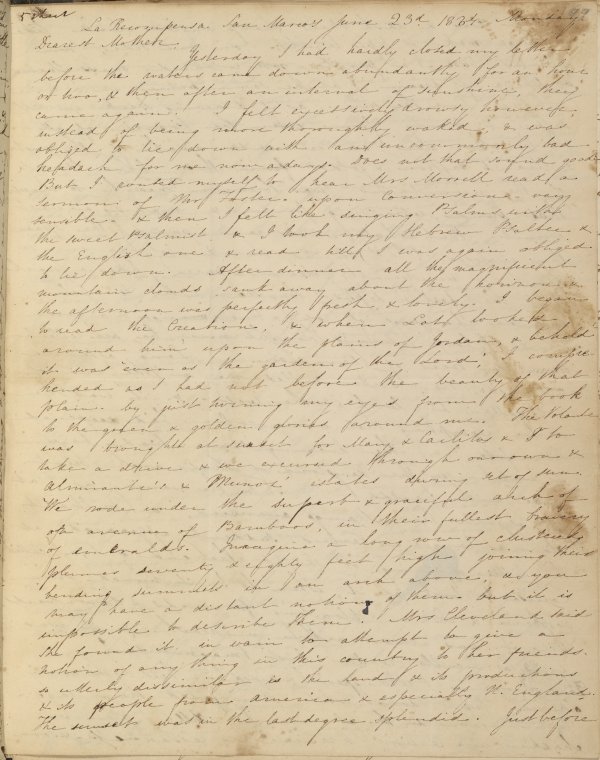 La Recompensa. San Marcos June 23d 1834. Monday 92
Dearest Mother,
Yesterday I had hardly closed my letter
before the waters came down abundantly for an hour
or two, & then after an interval of sunshine, they
came again. I felt excessively drowsy however,
instead of being more thoroughly waked & was
obliged to lie down with an uncommonly bad
headach for me now a days. Does not that sound good
But I roused myself to hear Mrs Morrell read a
sermon of Mr Foster upon Conversion very
sensible & then I felt like singing Psalms with
the sweet Psalmist & I took my Hebrew Psalter &
the English one & read till I was again obliged
to lie down. After dinner all the magnificent
mountain clouds sank away about the horizon &
the afternoon was perfectly fresh & lovely. I began
to read the Creation, & when Lot looked
around him upon the plains of Jordan, & behold
it was even as the garden of the Lord, I compre
hended as I had not before the beauty of that
plain by just turning my eyes from the book
to the green & golden glories around me. The Volante
was brought at sunset for Mary & Carlitos & I to
take a drive & we excursed through our own &
Almirante's & Munoz' estates during set of sun.
We rode under the superb & graceful arch of
an avenue of Bamboos, in their fullest
of emeralds. Imagine a long row of clustering
plumes seventy & eighty feet high joining their
bending summits in an arch above, & you
may have a distant notion of them but it is
impossible to describe them. Mrs Cleveland said
she found it in vain to attempt to give a
notion of any thing in this country to her friends.
so utterly dissimilar is the land & its productions
& its people from America & especially N. England.
The sunset was in the last degree splendid. Just before